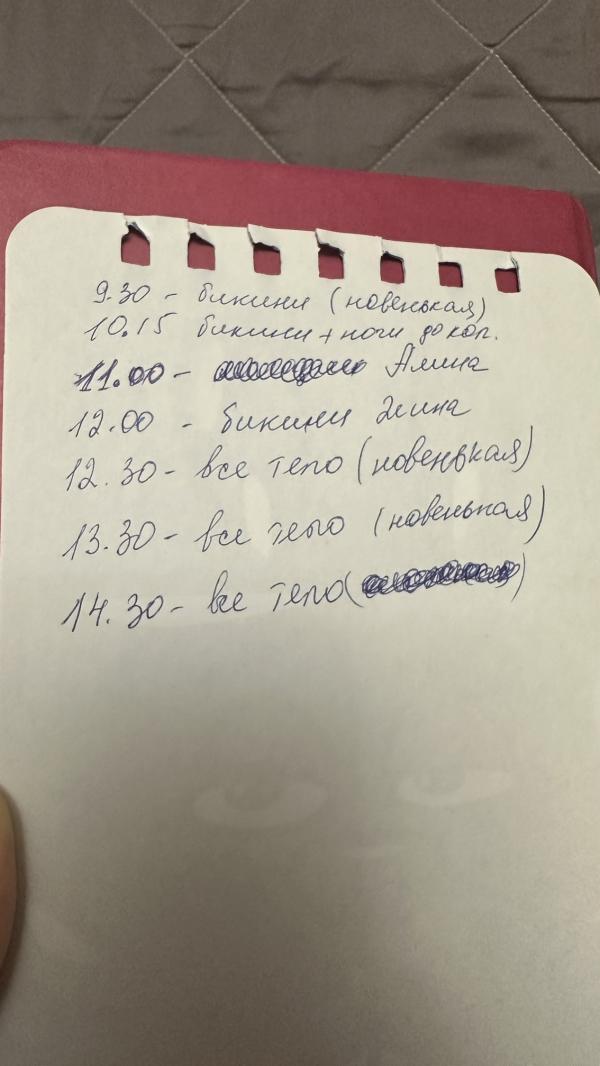 9.30 - бикини (новенькая)
10.15 бикини + ноги до кол.
11.00 - Алина
12.00 - бикини Элина
12.30 - все тело (новенькая)
13.30 - все тело (новенькая)
14.30 - все тело ( )